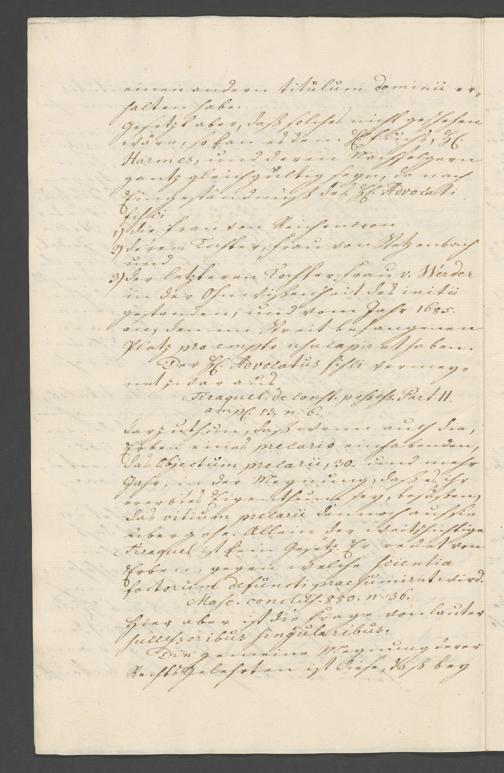 einen andern titulum dominii er-
halten habe.
Gesetzt aber, daß solches nicht geschehen
wäre, so kan es dem H.
Harmes, und deren Nachfolgern
gantz gleichgültig seyn, da nach
Eingeständnüß des H. Advocati
fisci
1) die Frau von
2) deren Tochter, Frau von Retzenbach
und
3) der letzteren Tochter, Frau v. Werder
in der Ohnwißenheit des initii
gestanden, und vom Jahr 1685.
an, den in Streit befangenen
Platz pro empto usucapiret haben.
Der H. Advocatus fisci vermey-
net zwar aus
Tiraquel. de const. possess. Part. II.
ampl. 13. n. 6.
darzuthun, daß wenn auch die
Erben eines precario einhabenden,
das Objectum precarii, 30. und mehr
Jahr, in der Meynung, daß es ihr
ererbtes Eigenthum sey, besäßen,
das vitium precarii dennoch auf sie
übergehe. Allein der weitschichtige
Tiraquel ist kein Gesetz. Er redet von
Erben, gegen welche scientia
factorum defuncti praesumiret wird.
Masc. conclus. 880. n. 36.
Hier aber ist die Frage von lauter
successoribus singularibus.
Die gemeine Meynung derer
Rechts Gelehrten ist diese, daß bey